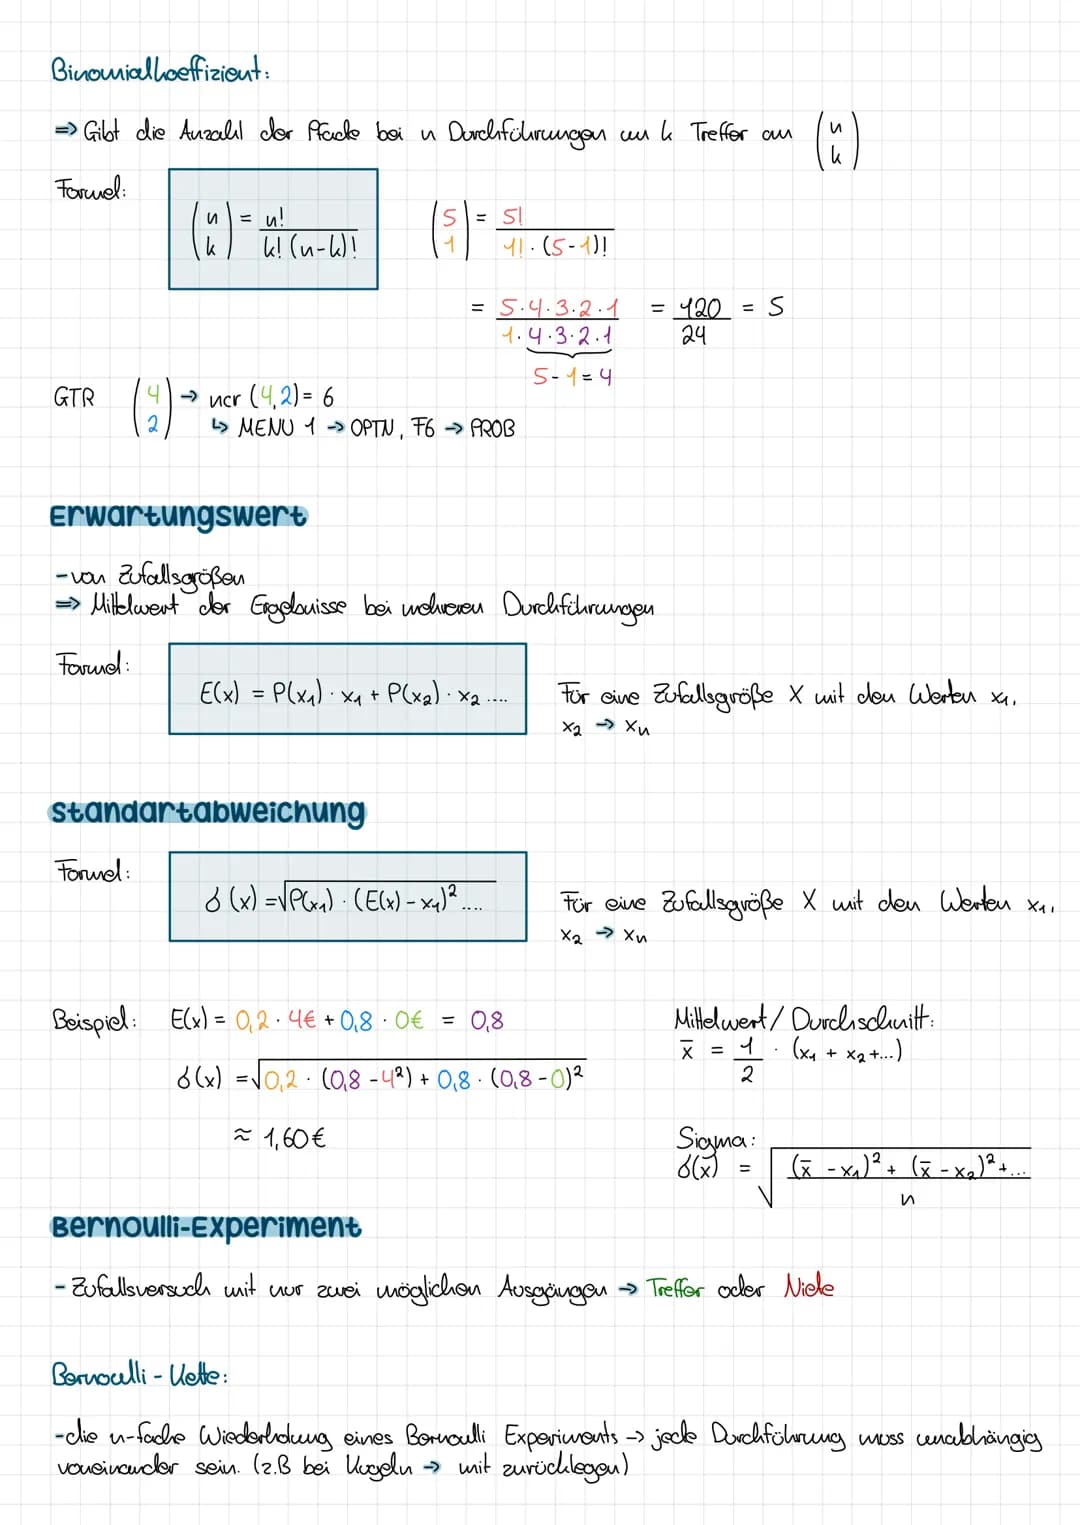 Binomialkoeffizient:
=> Gibt die Anzahl der Pfade bei n Durchführungen an k Treffer an (n k)
Formel:
(n k) = n! / k! (n-k)!
(5 1) = 5! / 1! · (5-1)!
= 5·4·3·2·1 / 1·4·3·2·1 = 120 / 24 = 5
5-1=4
GTR (4 2) → ncr (4,2) = 6
↳ MENU 1 → OPTN, F6 → PROB
Erwartungswert
- von Zufallsgrößen
=> Mittelwert der Ergebnisse bei mehreren Durchführungen
Formel:
E(x) = P(x₁) · x₁ + P(x₂) · x₂ ....
Für eine Zufallsgröße X mit den Werten x₁,
x₂ → xn
Standartabweichung
Formel:
δ(x) = √P(x₁) · (E(x) - x₁)² ....
Für eine Zufallsgröße X mit den Werten x₁,
x₂ → xn
Beispiel: E(x) = 0,2 · 4€ + 0,8 · 0€ = 0,8
δ(x) = √0,2 · (0,8 - 4²) + 0,8 · (0,8 - 0)²
≈ 1,60€
Mittelwert / Durchschnitt:
x̄ = 1/2 · (x₁ + x₂ +...)
Sigma:
δ(x̄) = √(x̄ - x₁)² + (x̄ - x₂)² +... / n
Bernoulli-Experiment
- Zufallsversuch mit nur zwei möglichen Ausgängen → Treffer oder Niete
Bernoulli - Kette:
- die n-fache Wiederholung eines Bernoulli Experiments → jede Durchführung muss unabhängig
voneinander sein. (z.B bei Kugeln → mit zurücklegen)